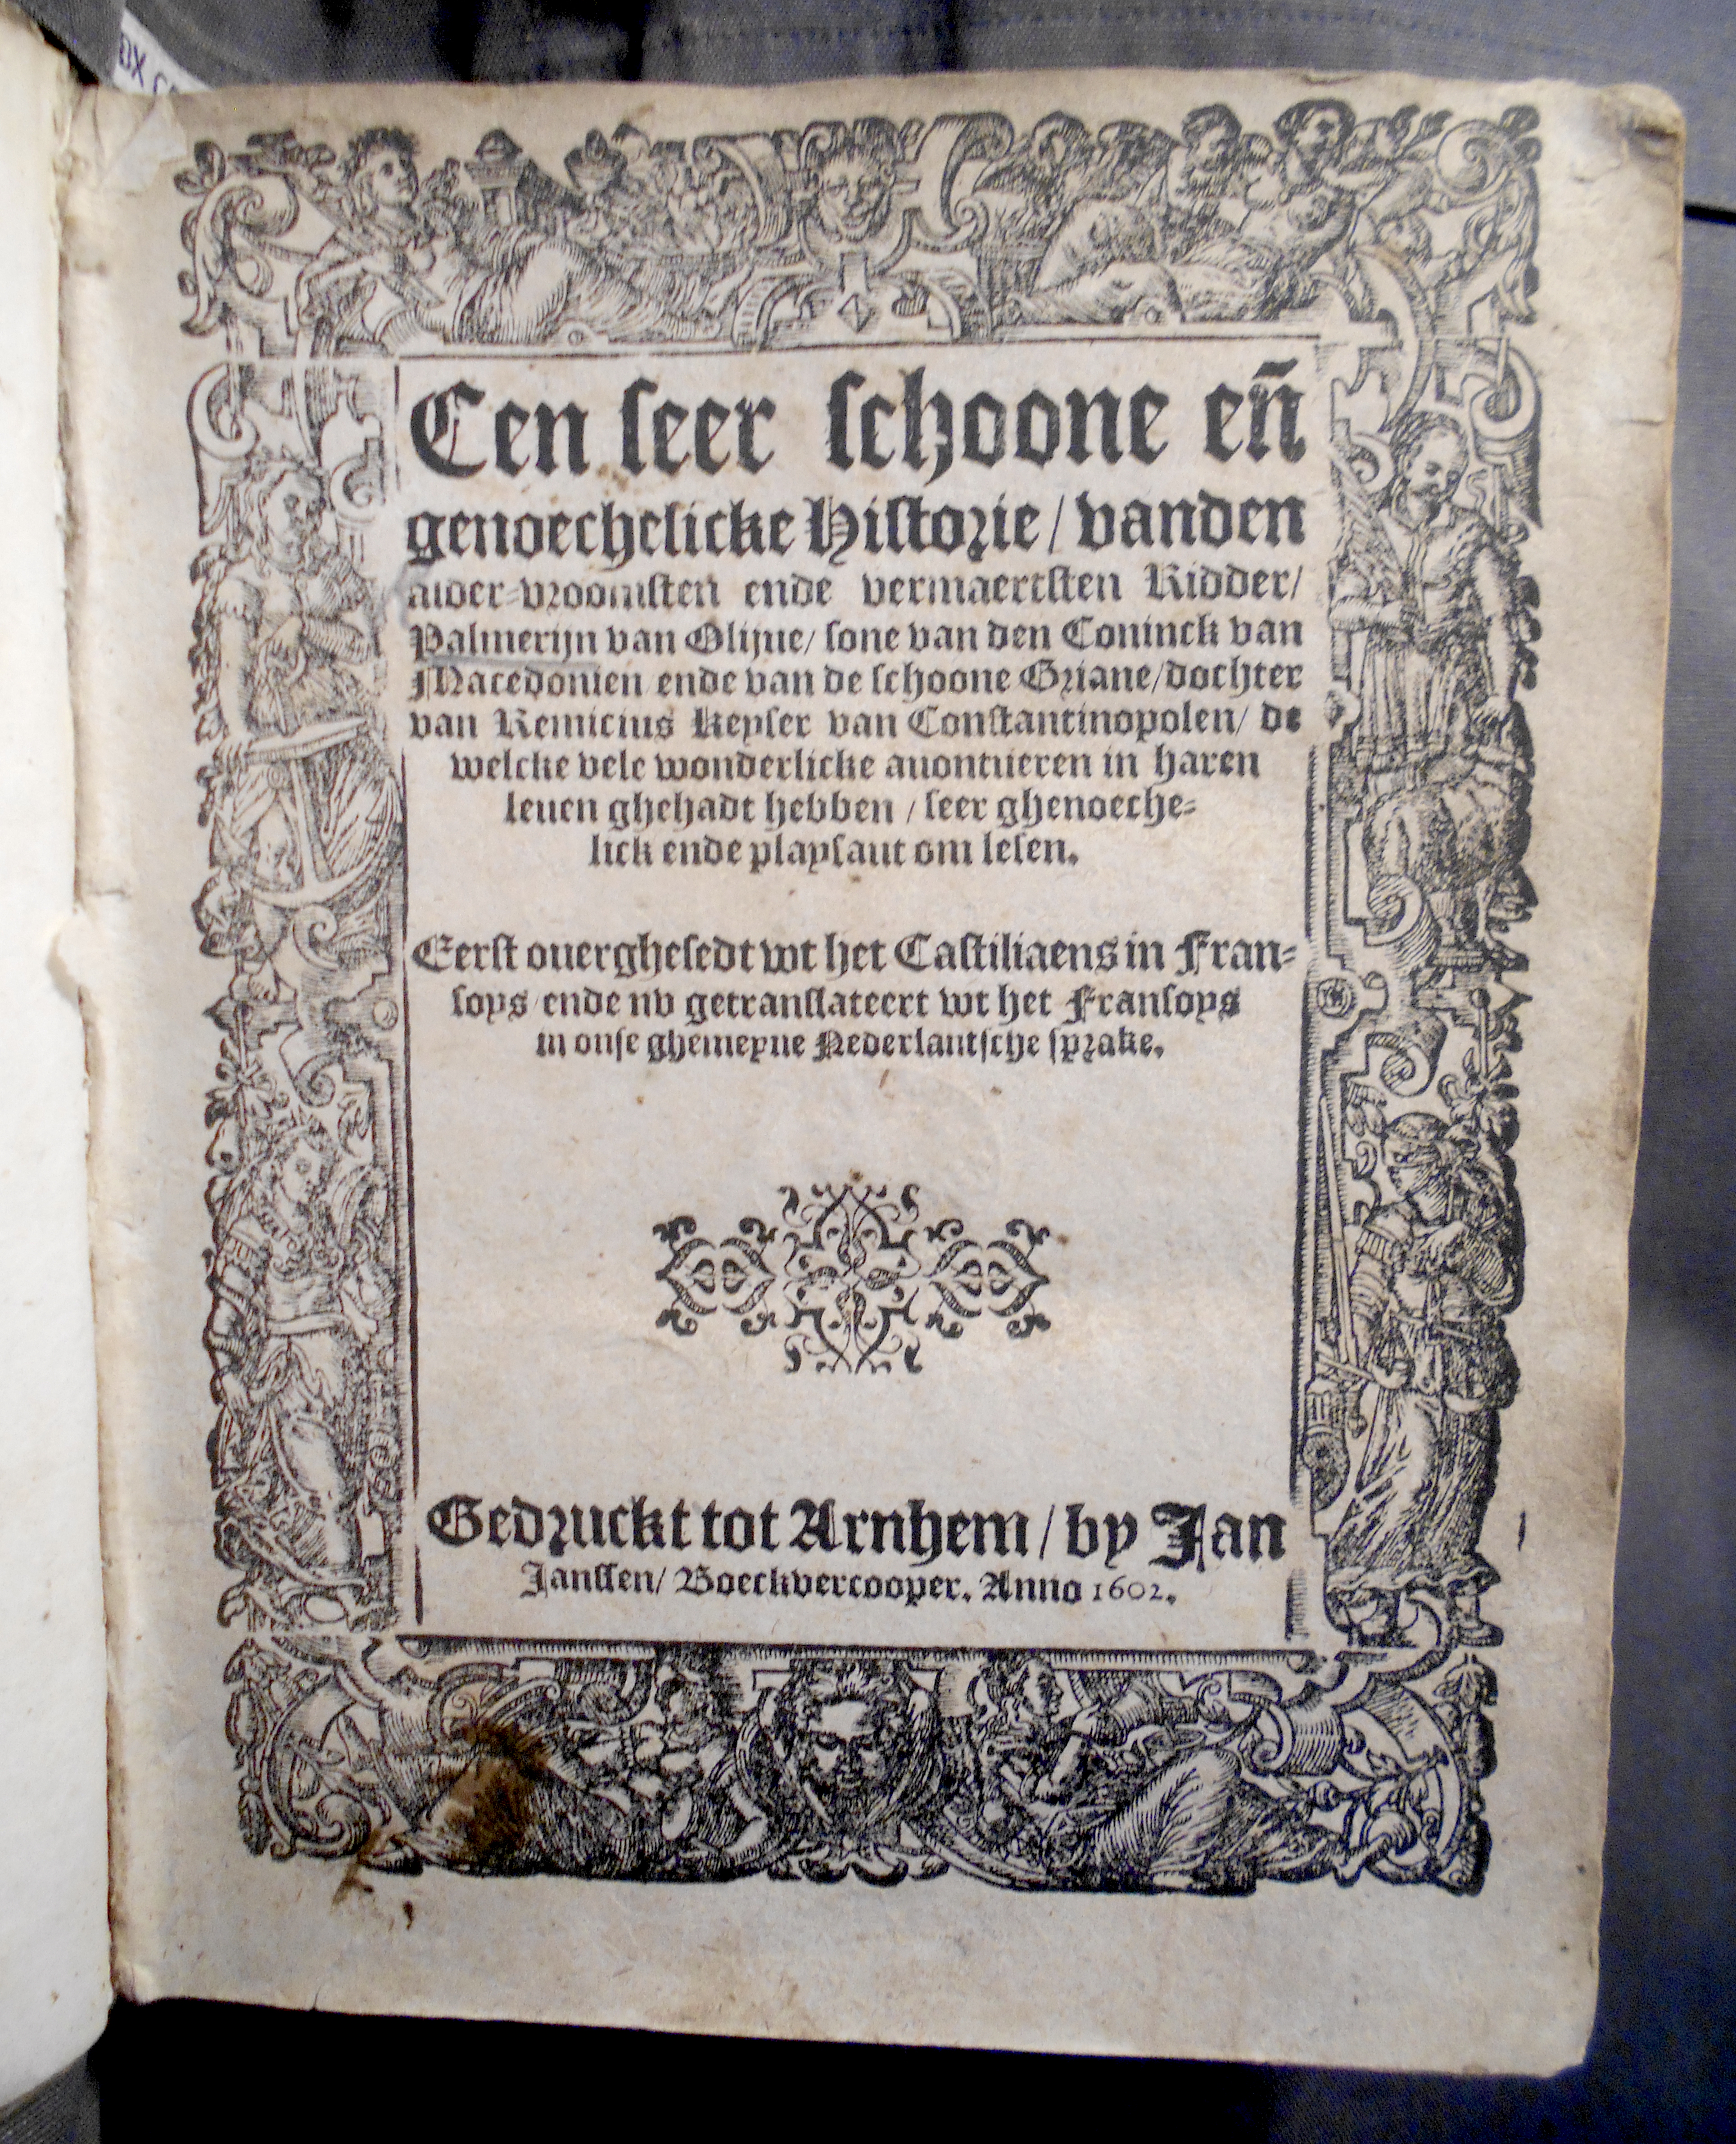 DX C
Een seer schoone en̄
genoechelicke Historie/ vanden
alder-vroomsten ende vermaertsten Ridder/
Palmerijn van Olijue/ sone van den Coninck van
Macedonien ende van de schoone Griane/dochter
van Remicius Keyser van Constantinopolen/ de
welcke vele wonderlicke auontueren in haren
leuen ghehadt hebben / seer ghenoeche-
lick ende playsant om lesen.
Eerst ouerghesedt wt het Castiliaens in Fran-
soys/ ende nv getranslateert wt het Fransoys
in onse ghemeyne Nederlantsche sprake.
Gedruckt tot Arnhem/ by Jan
Janssen/ Boeckvercooper. Anno 1602.